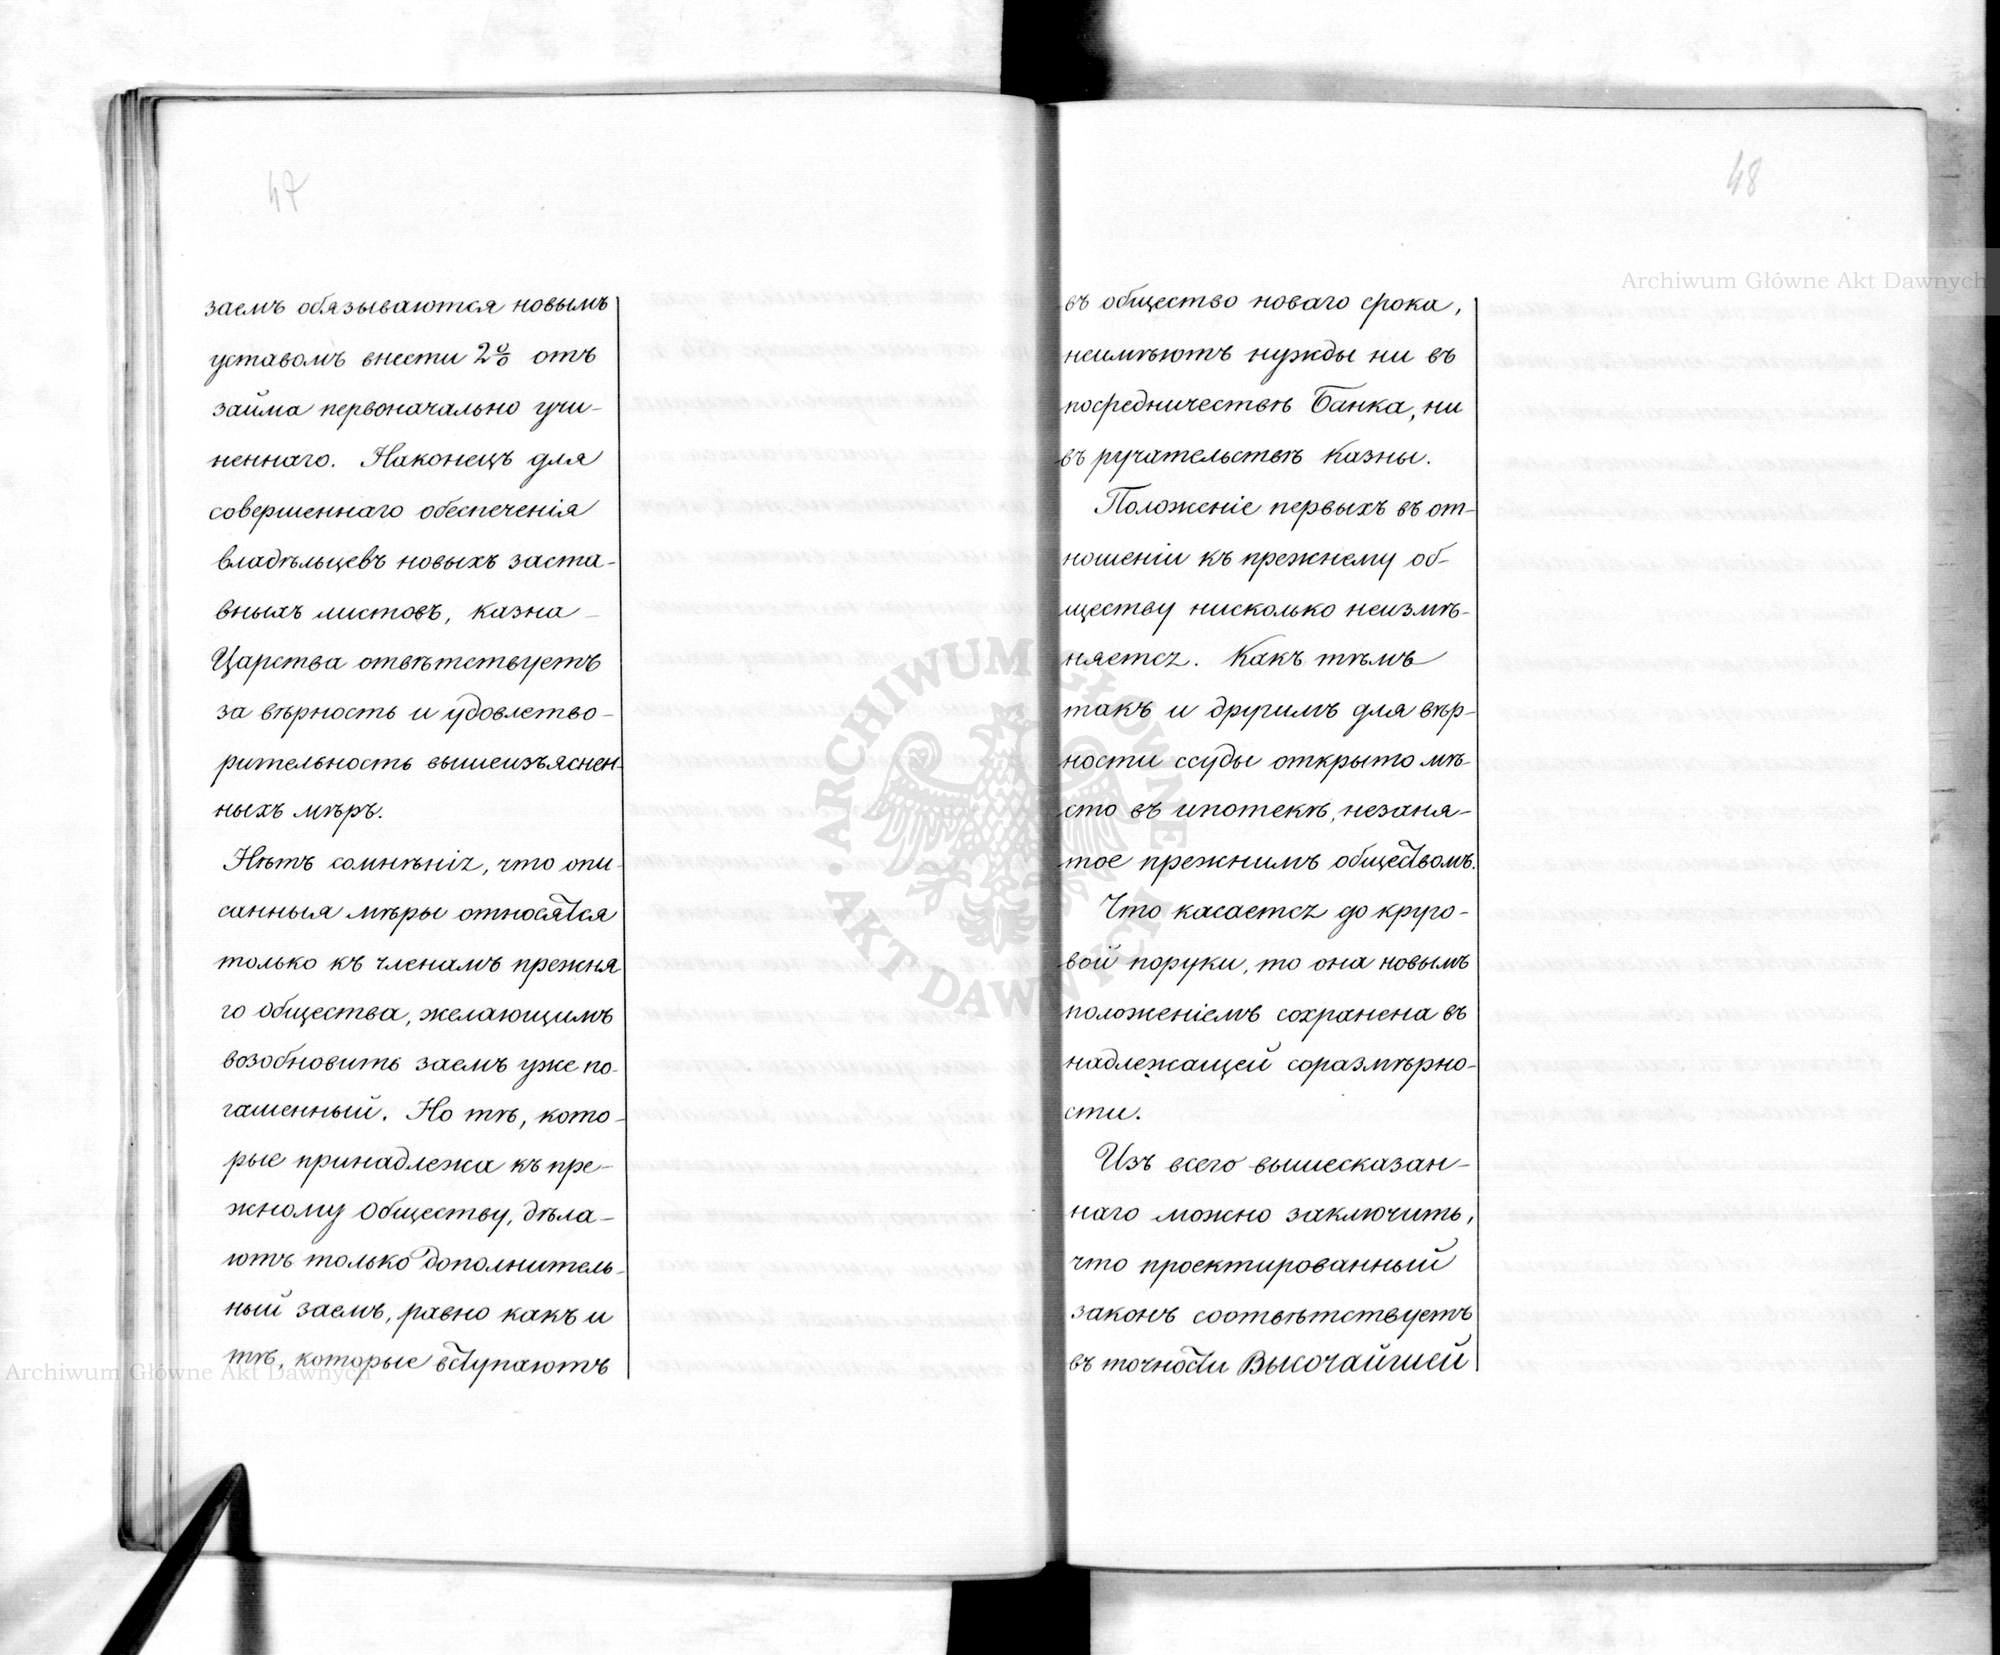 47
заемъ обязываются новымъ
уставомъ внести 2% отъ
займа первоначально учи-
неннаго. Наконецъ для
совершеннаго обеспеченія
владѣльцевъ новыхъ заста-
вныхъ листовъ, казна
Царства отвѣтствуетъ
за вѣрность и удовлетво-
рительность вышеизъяснен-
ныхъ мѣръ.
Нѣтъ сомнѣнія, что опи-
санныя мѣры относятся
только къ членамъ прежня
го общества, желающимъ
возобновить заемъ уже по-
гашенный. Но тѣ, кото-
рые принадлежа къ пре-
жному обществу, дѣла-
ютъ только дополнитель-
ный заемъ, равно какъ и
тѣ, которые вступаютъ
48
въ общество новаго срока,
неимѣютъ нужды ни въ
посредничествѣ Банка, ни
въ ручательствѣ Казны.
Положеніе первыхъ въ от-
ношеніи къ прежнему об-
ществу нисколько неизмѣ-
няется. Какъ тѣмъ
такъ и другимъ для вѣр-
ности ссуды открыто мѣ-
сто въ ипотекѣ, незаня-
тое прежнимъ обществомъ.
Что касается до круго-
вой поруки, то она новымъ
положеніемъ сохранена въ
надлежащей соразмѣрно-
сти.
Изъ всего вышесказан-
наго можно заключить,
что проектированный
законъ соотвѣтствуетъ
въ точности Высочайшей
Archiwum Główne Akt Dawnych
Archiwum Główne Akt Dawnych
ARCHIWUM GŁÓWNE AKT DAWNYCH